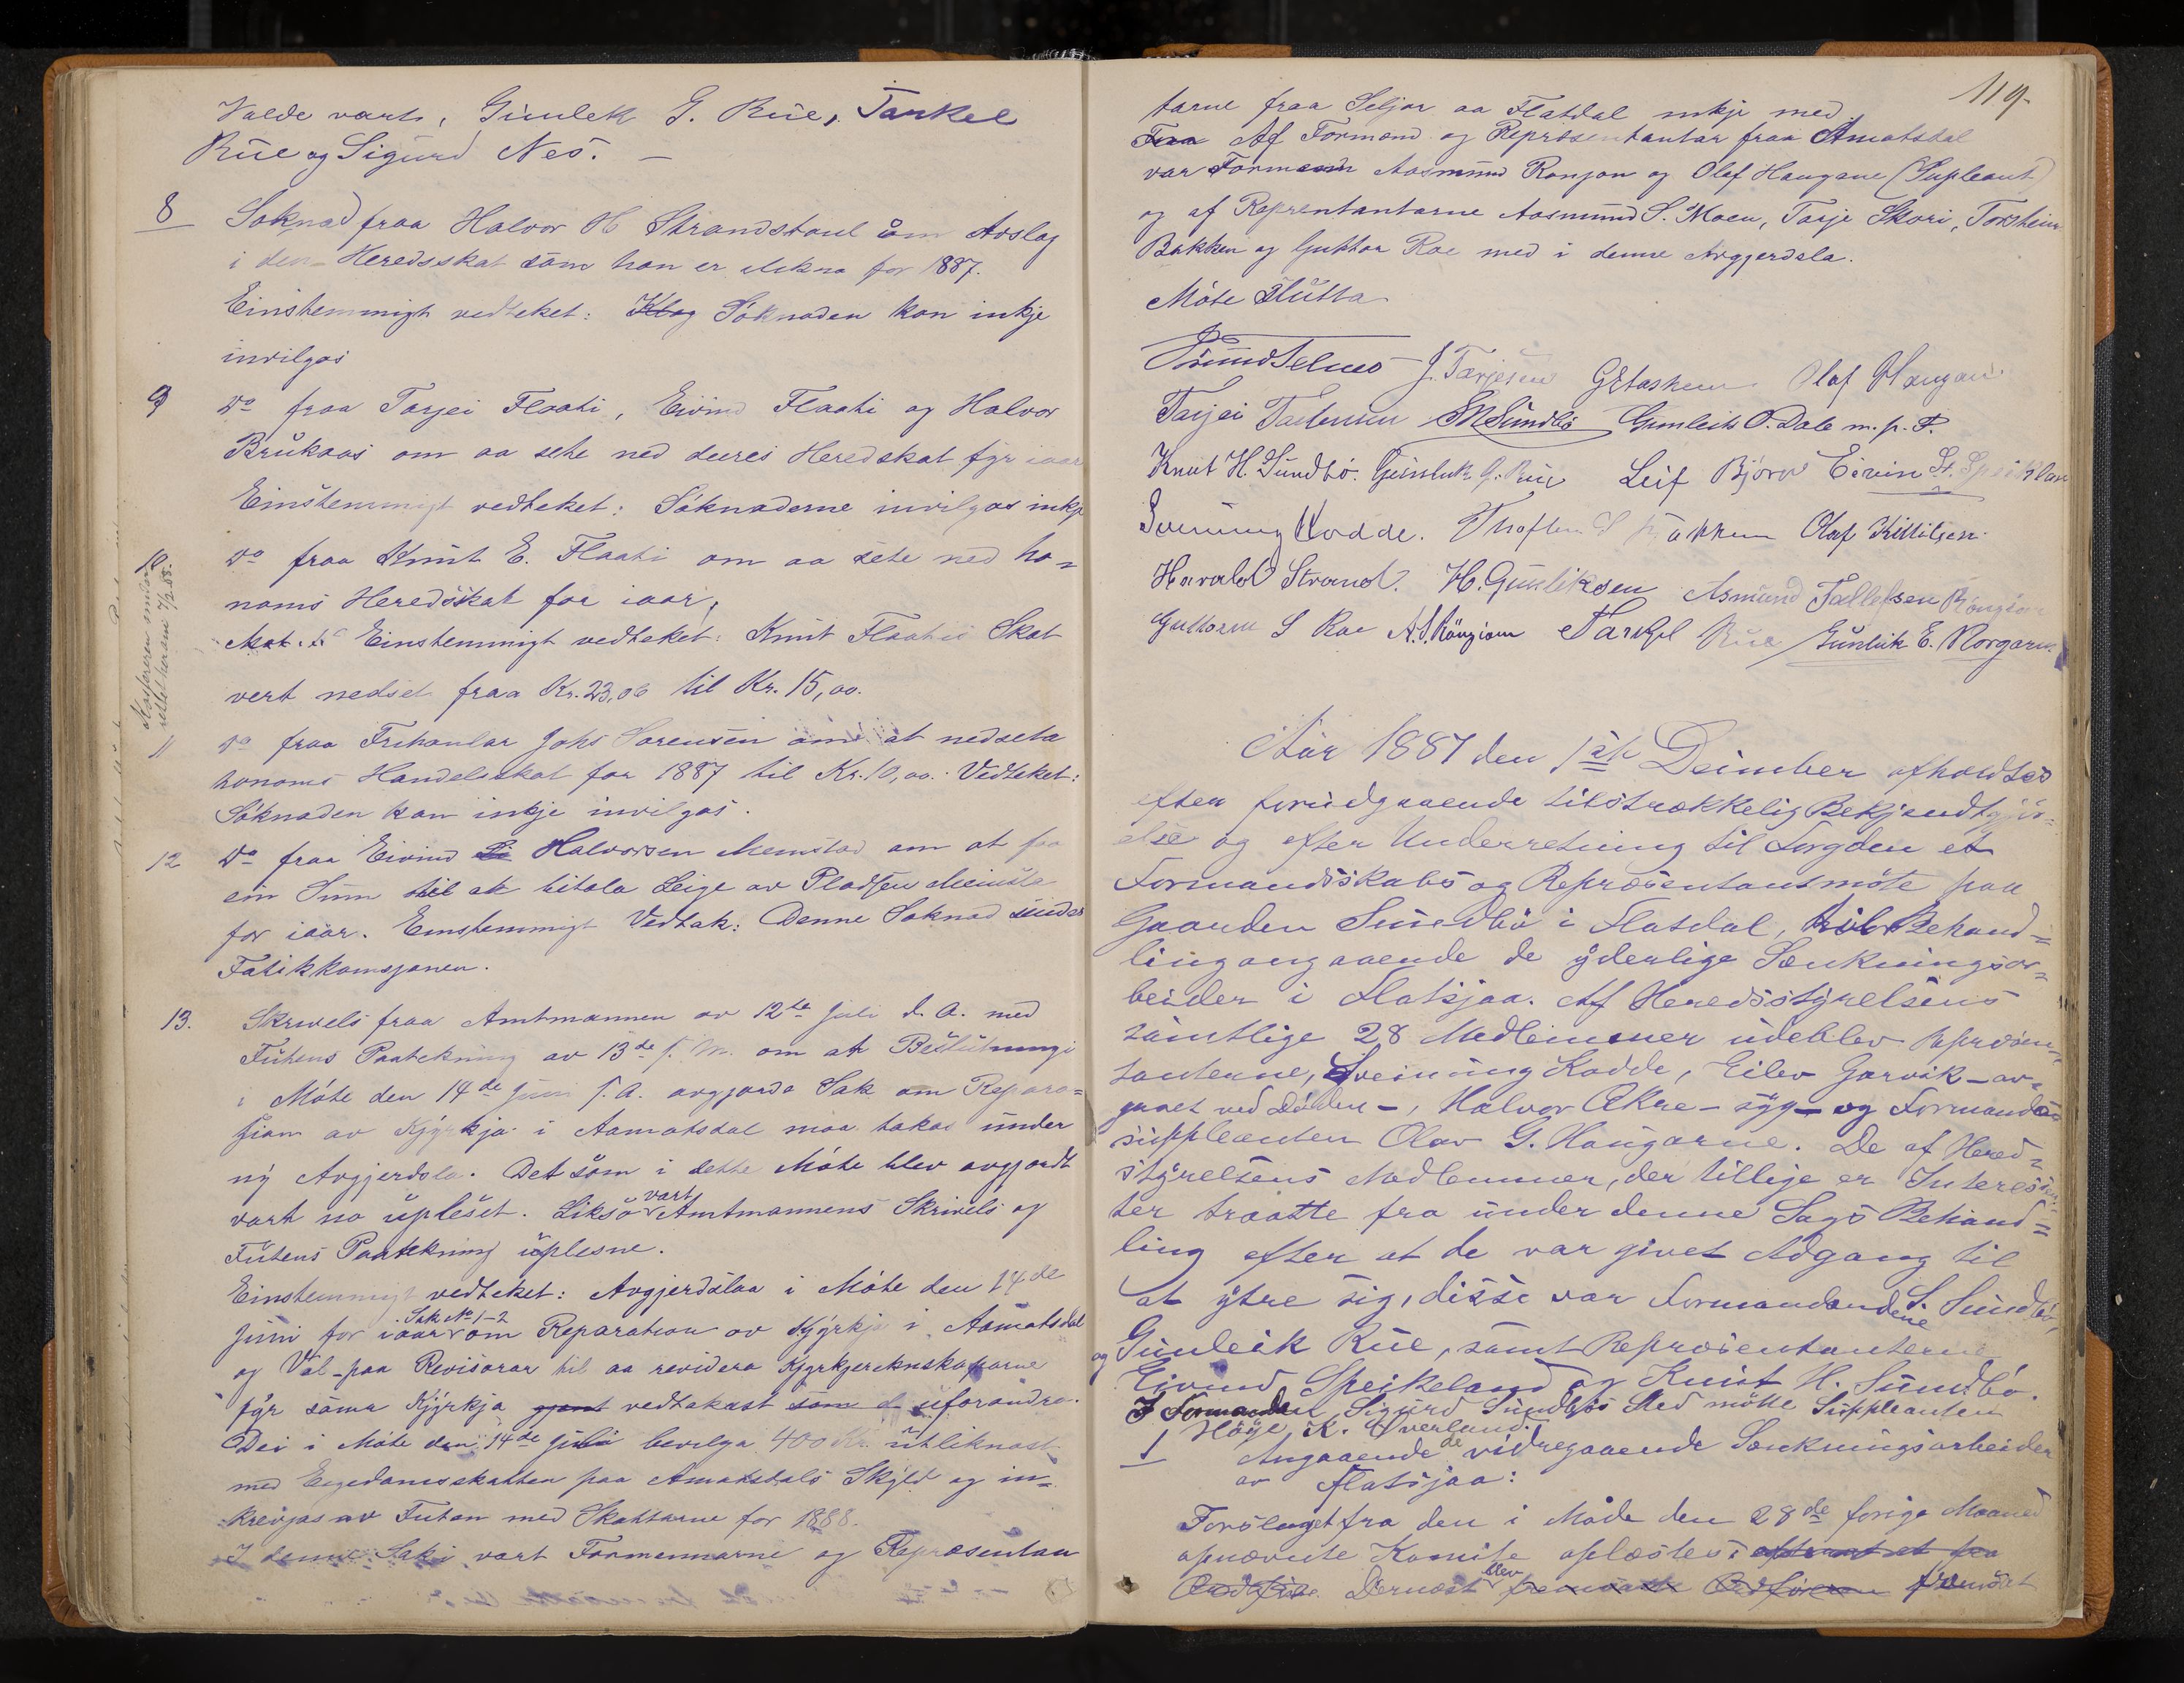 Valde vart, Gunlek G. Rue, Tarkel
Rue og Sigurd Nes. —
8 Soknad fraa Halvor H Strandstaul om Avslag
i den Heredsskat som han er likna for 1887.
Einstemmigt vedteket: Klag Söknaden kan inkje
invilgas
9 Do fraa Tarjei Flaati, Eivind Flaati og Halvor
Brukaas om aa sete ned deires Heredskat fyr iaar
Einstemmigt vedteket: Söknaderne invilgas inkje
10 Do fraa Knut E. Flaati om aa sete ned ho-
noms Heredsskat for iaar,
Einstemmigt vedteket: Knut Flaatis Skat
vert nedset fraa Kr. 23,06 til Kr. 15,00.
11 Do fraa Johs Sorensen om at nedseta
honoms Handelsskat for 1887 til Kr. 10,00. Vedteket:
Söknaden kan inkje invilgas.
12 Do fraa Eivind Li Halvorsen Meinstad om at faa
ein Sum til at bitala Leige av Pladsen
for iaar. Einstemmigt Vedtak: Denne Soknad
Fatikkomsjonen.
13. Skrivels fraa Amtmannen av 12te Juli d. A. med
Futens Paatekning av 13de s. M. om at Beslutningi
i Möte den 14de Juni s. A. avgjorde Sak om Repara-
sjon av Kjyrkja i Aamotsdal maa takas under
ny Avgjerdsla. Det som i dette Möte blev avgjordt
vart no upleset. Likso vart Amtmannens Skrivels og
Futens Paatekning uplesne.
Einstemmigt vedteket: Avgjerdslaa i Möte den 14de
Juni for iaar Sak No 1-2 om Reparation av Kjyrkja i Aamotsdal
og Val paa Revisorar til aa revidera Kjyrkjereknskaparne
fyr sama Kjyrkja gjent vedtakast som d uforandra.
Dei i Möte den 14de Juli bevilga 400 Kr. utliknast
med Eigedomsskatten paa Amotsdals Skyld og in-
krevjas av Futen med Skattarne for 1888.
I denne Saki vart Formennarne og Representan
119.
tarne fraa Seljor aa Flatdal inkje med
Fraa Af Formænd og Representantar fraa Amotsdal
var Formænn Aasmund Ronjon og Olaf Haugane (Supleant)
og af Reprentantarne Aasmund S. Moen, Tarje Skori, Torstein
Bakken og Guttor Roe med i denne Avgjerdsla.
Möte slutta
J. Tarjesen Olaf Haugan
Tarjei Tarjensen SNSundbö Gunleik O. Dale m. p. P.
Knut H. Sundbö. Gunleik G. Rue Leif Björo Eivin St. Speikland
Svenung Kodde. Olaf Kittilsen.
Harald Strand. H. Gunliksen Asmund Tallefsen Rongion
Guttorm S Roe A. S. Rongion Tarkjel Rue Gunleik E. Norgarn.
Aar 1887 den 1ste Desimber afholdtes
efter forudgaaende tilstrækkelig Bekjendtgjör-
else og efter Underretning til Fogden et
Formandsskabs og Repræsentantmöte paa
Gaarden Sundbö i Flatdal, til Behand-
ling angaaende de yderlige Sænkningsar-
beider i Flatsjaa. Af Heredsstyrelsens
samtlige 28 Medlemmer udeblev Repræsen-
tanterne, Sveinung Kodde, Eilev Garvik - av-
gaaet ved Döden -, Halvor Ækre - syg - og Formands
suppleanten Olav G. Haugarne. De af Hered-
styrelsens Medlemmer, der tillige er Interessen-
ter traatte fra under denne Sags Behand-
ling efter at de var givet Adgang til
at ytre sig, disse var Formændene S. Sundbö,
og Gunleik Rue, samt Repræsentanterne
Eivind Speikeland og Knut H. Sundbö.
I Formanden Sigurd Sundbös Sted mötte Suppleanten
Höge K. Överland.
1 Angaaende de vidregaaende Sænkningsarbeider
av Flatsjaa:
Forslaget fra den i Möde den 28de forige Maaned
opnævnte Komite oplæstes:
Dernæst blev fremsat